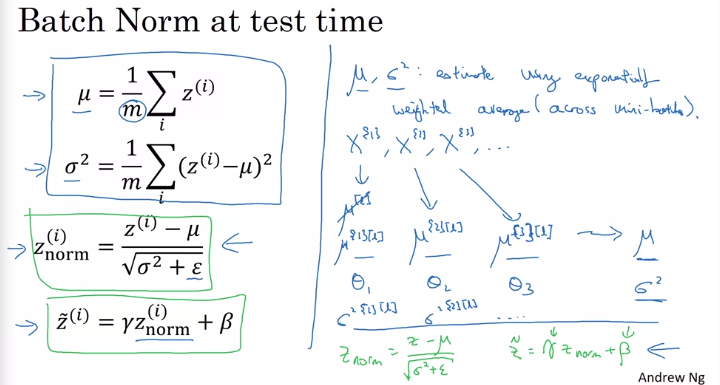 Batch Norm at test time
μ = 1/m ∑_i z^(i)
σ² = 1/m ∑_i (z^(i) − μ)²
z_norm^(i) = (z^(i) − μ) / √(σ² + ε)
z̃^(i) = γ z_norm^(i) + β
μ, σ² : estimate using exponentially
weighted average (across mini-batches).
X^{1}, X^{2}, X^{3}, ...
μ^{1}[l] μ^{2}[l] μ^{3}[l] → μ
θ₁ θ₂ θ₃ σ²
σ²^{1}[l] σ²^{2}[l] ...
z_norm = (z − μ) / √(σ² + ε) z̃ = γ z_norm + β
Andrew Ng